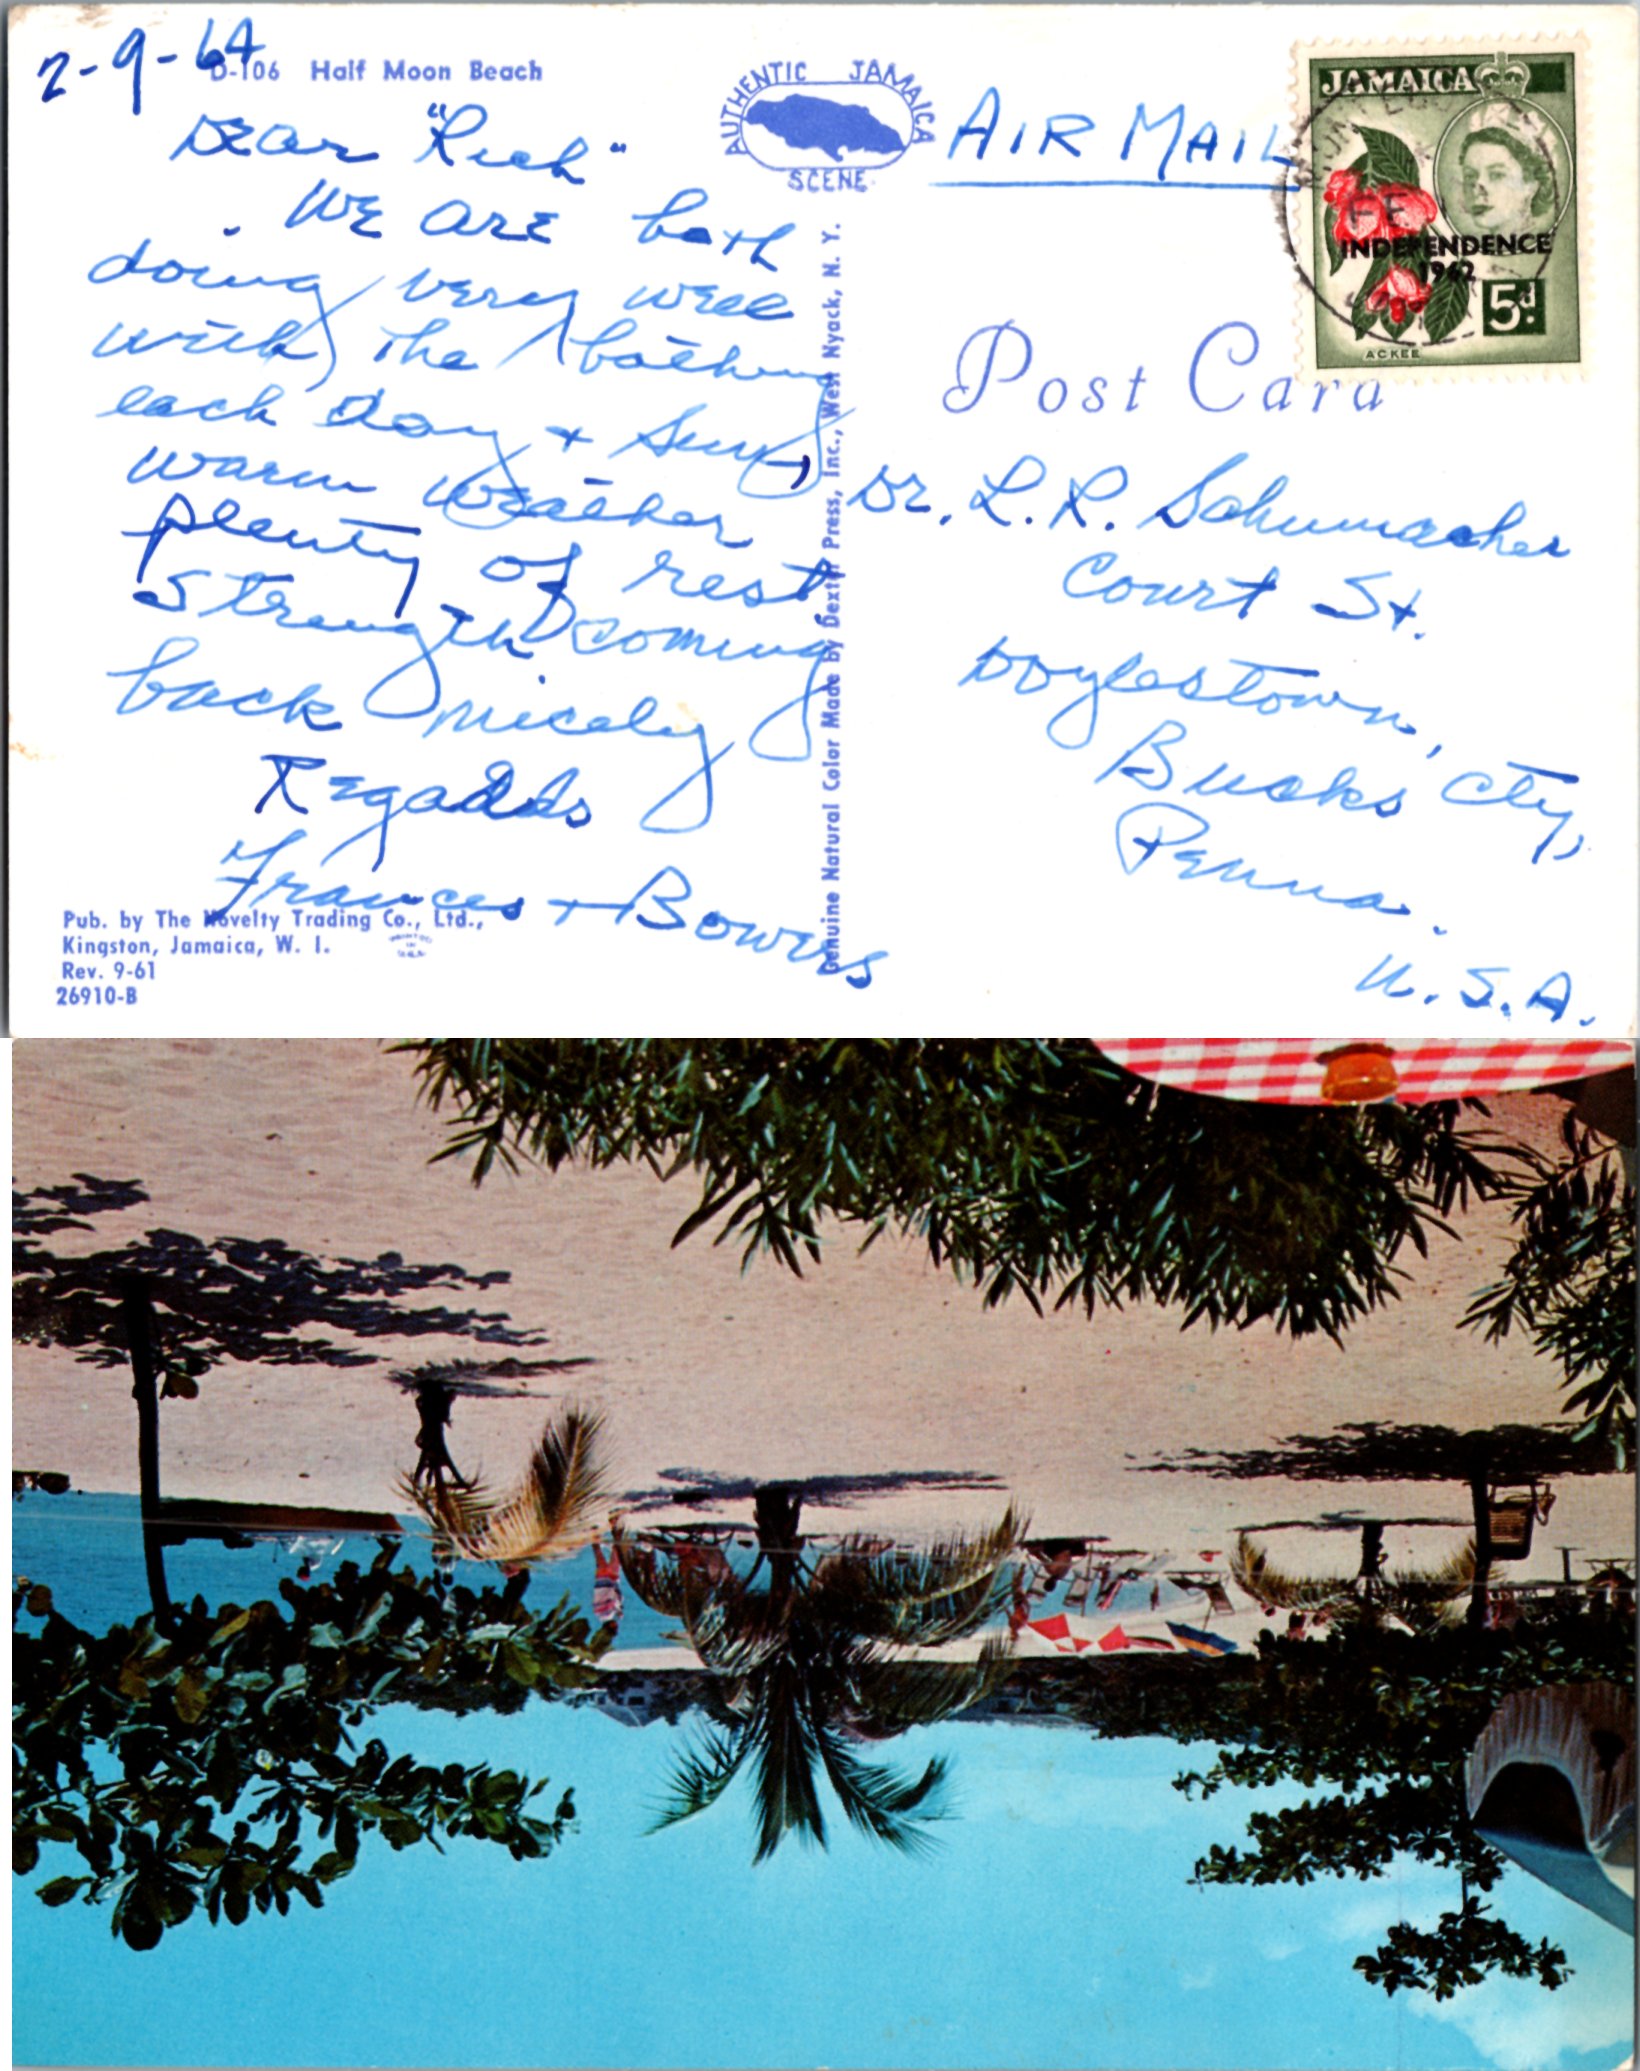 2-9-64
D-106 Half Moon Beach
Dear "Rich"
We are both
doing very well
with the bathing
each day + sun,
warm weather
plenty of rest
Strength coming
back nicely
Regards
Frances + Bowers
Pub. by The Novelty Trading Co., Ltd.,
Kingston, Jamaica, W. I.
Rev. 9-61
26910-B
AUTHENTIC JAMAICA
SCENE
Genuine Natural Color Made by Dexter Press, Inc., West Nyack, N. Y.
AIR MAIL
JAMAICA
INDEPENDENCE
1962
5d.
ACKEE
Post Card
Dr. L. R. Schumacher
Court St.
Doylestown,
Bucks Cty,
Penna.
U. S. A.